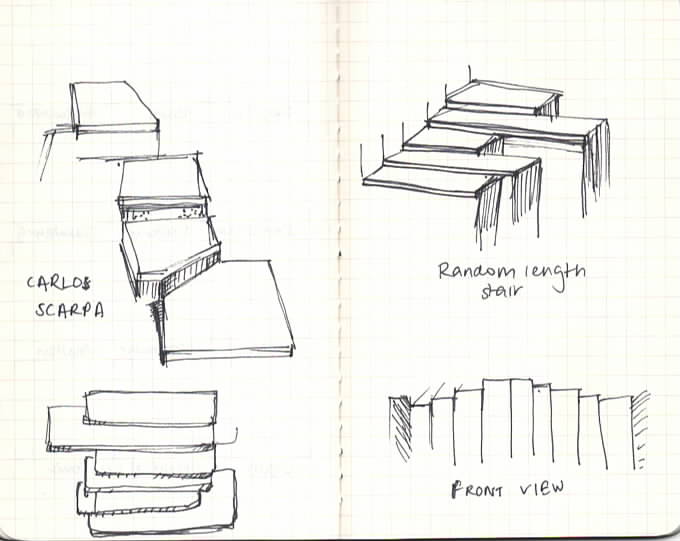 CARLOS
SCARPA
Random length
stair
FRONT VIEW